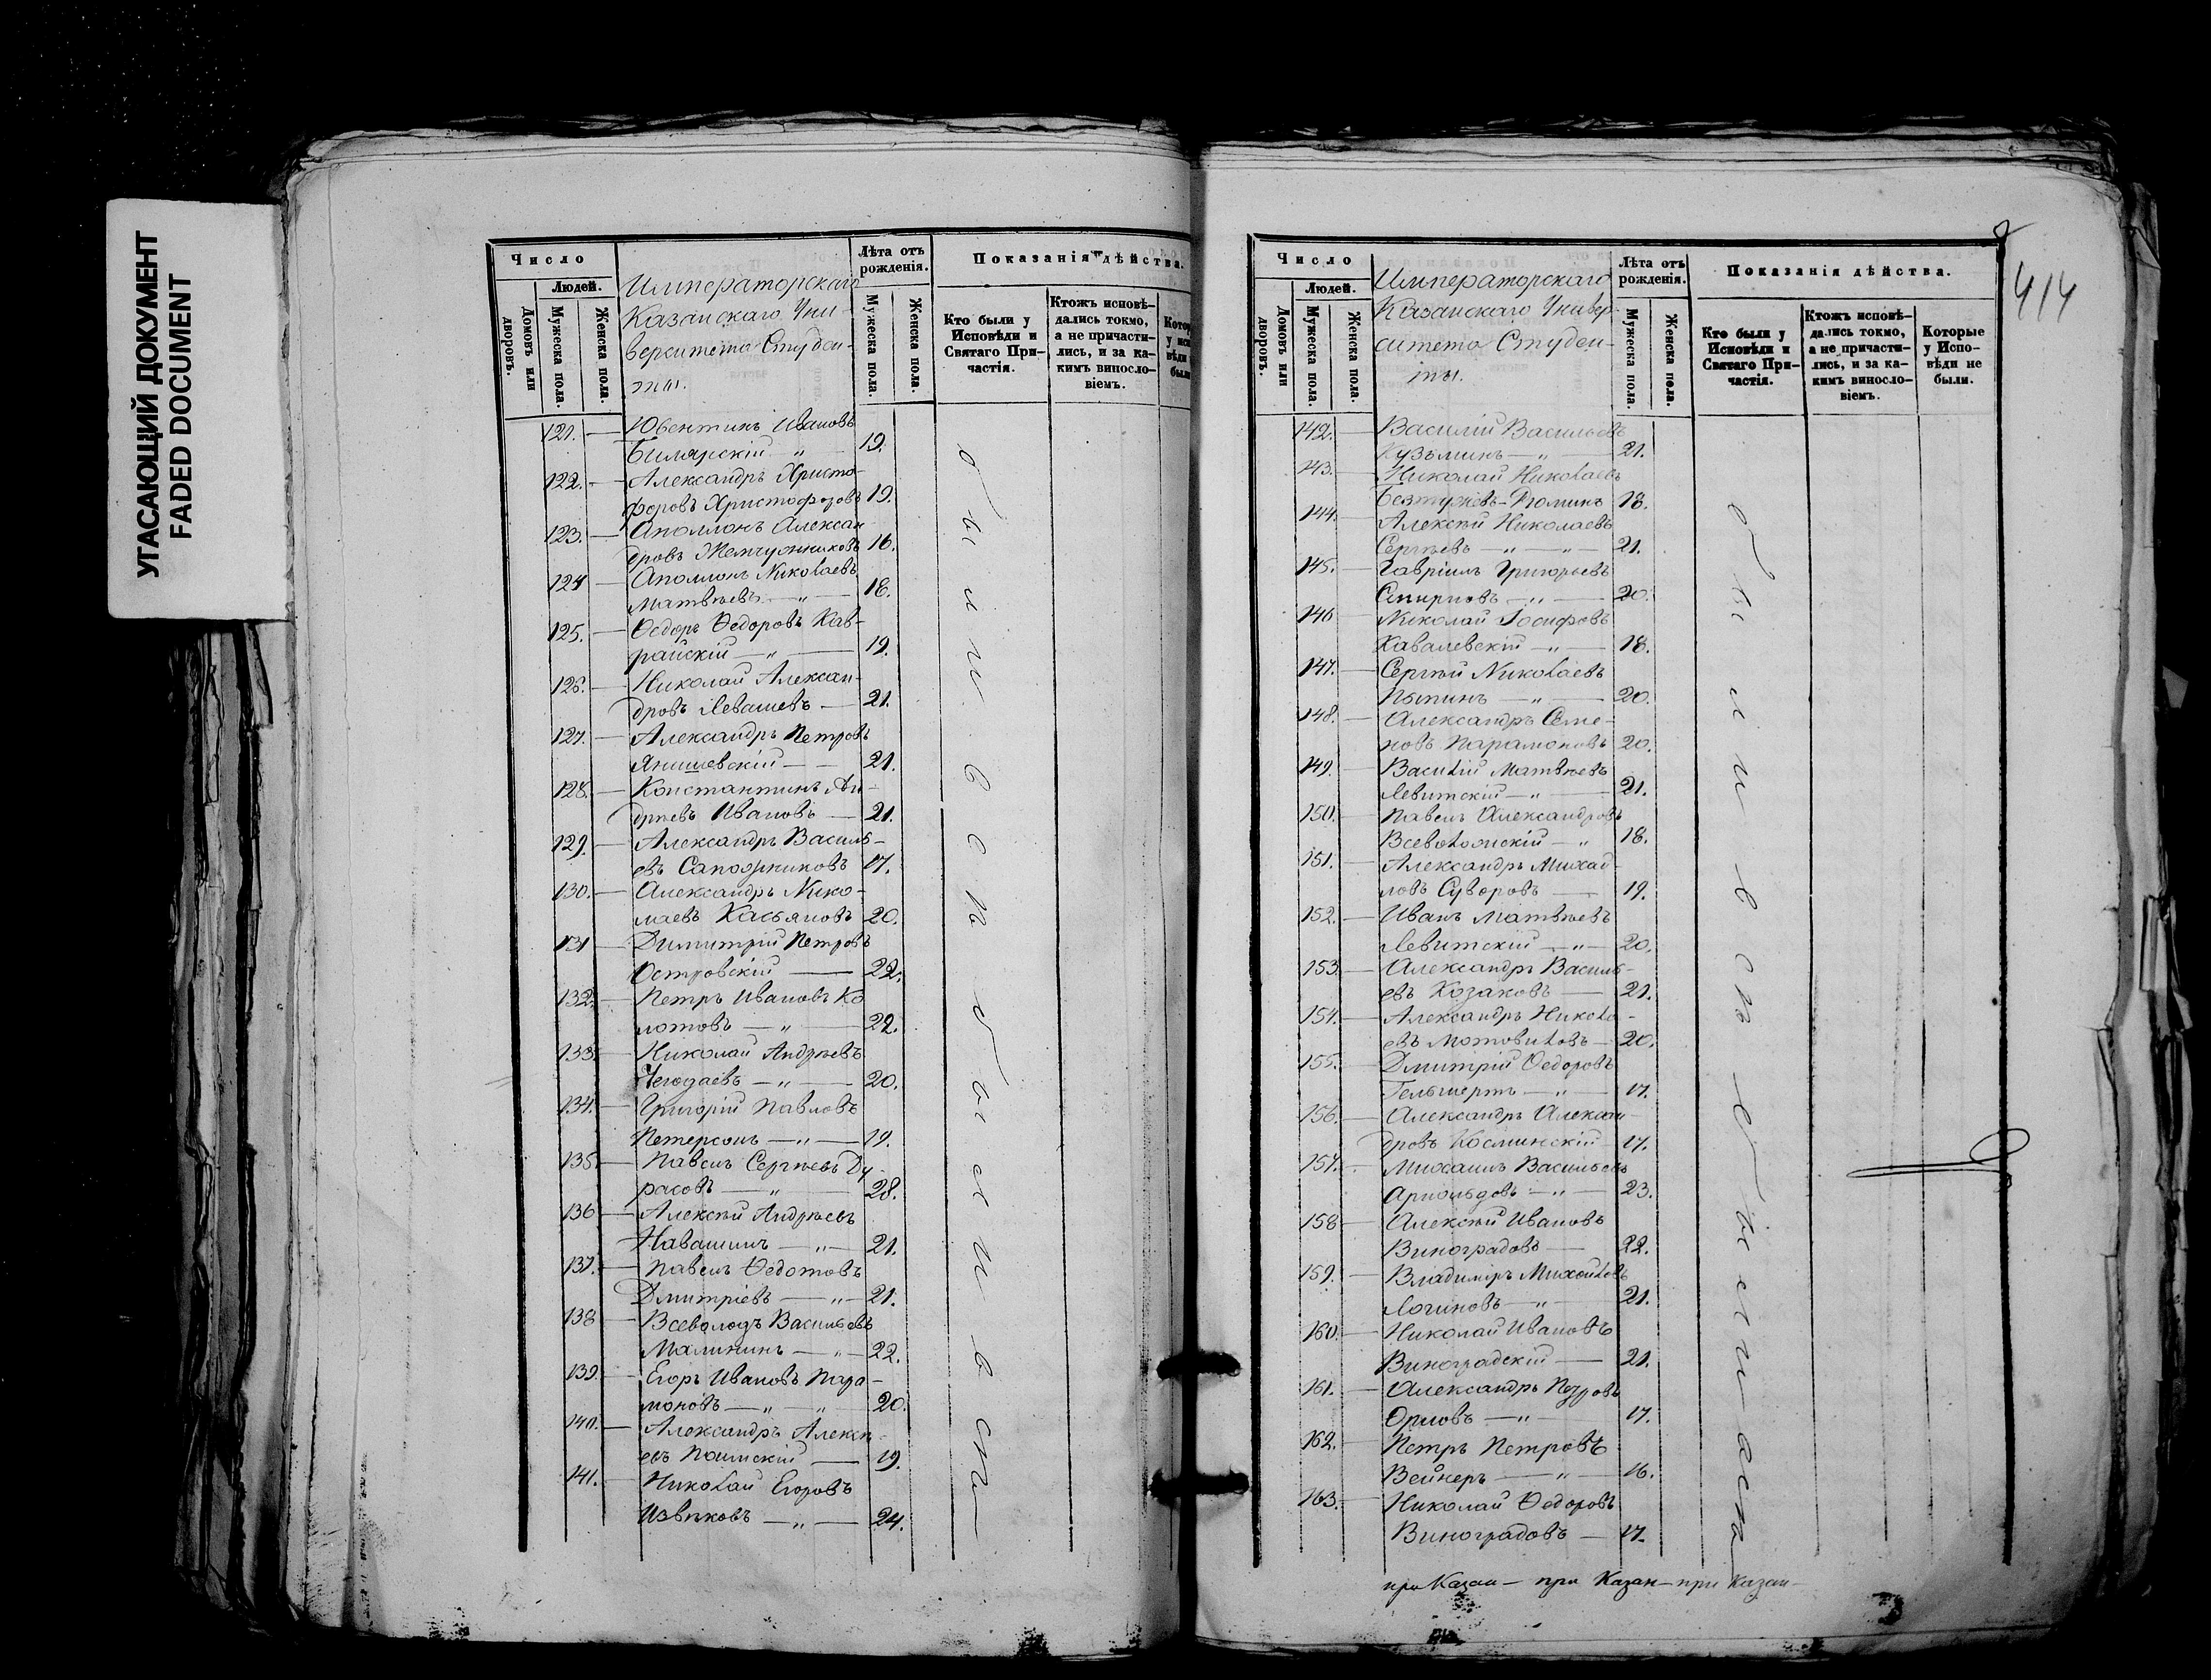 УГАСАЮЩИЙ ДОКУМЕНТ
FADED DOCUMENT
Число
Людей.
Домовъ или дворовъ.
Мужеска пола.
Женска пола.
Императорскаго
Казанскаго Уни-
верситета Студен-
ты.
Лѣта отъ рожденія.
Мужеска пола.
Женска пола.
Показанія дѣйства.
Кто были у Исповѣди и Святаго При-частія.
Ктожъ исповѣ-дались токмо, а не причасти-лись, и за ка-кимъ винословіемъ.
121. — Ювентинъ Ивановъ
Билярскій „ — 19.
122. — Александръ Христо-
форовъ Христофозовъ 19.
123. — Аполлонъ Алексан-
дровъ Жемчужниковъ 16.
124 — Аполлонъ Николаевъ
Матвѣевъ — „ — 18.
125. — Ѳедоръ Ѳедоровъ Кав-
райскій — „ — 19.
126. — Николай Алексан-
дровъ Левашевъ — 21.
127. — Александръ Петровъ
Янишевскій — — 21.
128. — Константинъ Ан-
дреевъ Ивановъ — 21.
129. — Александръ Василь-
евъ Сапожниковъ 17.
130. — Александръ Нико-
лаевъ Касьяновъ 20.
131 — Димитрій Петровъ
Островскій — 22.
132. — Петръ Ивановъ Ко
лотовъ — „ — 22.
133. — Николай Андреевъ
Чегодаевъ — „ — 20.
134. — Григорій Павловъ
Петерсонъ — „ — 19.
135 — Павелъ Сергѣевъ Ду-
расовъ — „ — 28.
136 — Алексѣй Андреевъ
Навашинъ — „ — 21.
137. — Павелъ Ѳедотовъ
Дмитріевъ — „ — 21.
138 — Всеволодъ Васильевъ
Малининъ — „ — 22.
139. — Егоръ Ивановъ Пара-
моновъ — „ — „ 20.
140. — Александръ Алексѣ-
евъ Поимскій — 19.
141. — Николай Егоровъ
Извѣковъ — „ — 24.
были в исп
были в исп
414
Число
Людей.
Домовъ или дворовъ.
Мужеска пола.
Женска пола.
Императорскаго
Казанскаго Универ-
ситета Студен-
ты.
Лѣта отъ рожденія.
Мужеска пола.
Женска пола.
Показанія дѣйства.
Кто были у Исповѣди и Святаго При-частія.
Ктожъ исповѣ-дались токмо, а не причасти-лись, и за ка-кимъ винословіемъ.
Которые у Испо-вѣди не были.
142. — Василій Васильевъ
Кузьминъ — „ — 21.
143. — Николай Николаевъ
Безтужевъ-Рюминъ 18.
144. — Алексѣй Николаевъ
Сергѣевъ — „ — „ — 21.
145. — Гавріилъ Григорьевъ
Смирновъ — „ — 20.
146 — Николай Іосифовъ
Кавалевскій — „ — 18.
147. — Сергѣй Николаевъ
Пыпинъ — „ — 20.
148. — Александръ Семе-
новъ Парамоновъ 20.
149. — Василій Матвѣевъ
Левитскій — „ — 21.
150. — Павелъ Александровъ
Всеволожскій — „ 18.
151. — Александръ Михай-
ловъ Суворовъ — 19.
152. — Иванъ Матвѣевъ
Левитскій — „ — 20.
153. — Александръ Василь-
евъ Козаковъ — 21.
154. — Александръ Никола-
евъ Мотовиловъ — 20.
155. — Дмитрій Ѳедоровъ
Гельшертъ — „ — 17.
156. — Александръ Алексан-
дровъ Косминскій 17.
157. — Михаилъ Васильевъ
Арнольдовъ — „ — 23.
158 — Алексѣй Ивановъ
Виноградовъ — 22.
159. — Владиміръ Михайловъ
Логиновъ — „ — 21.
160. — Николай Ивановъ
Виноградскій — 21.
161. — Александръ Петровъ
Орловъ — „ — 17.
162. — Петръ Петровъ
Вейнеръ — „ — 16.
163. — Николай Ѳедоровъ
Виноградовъ — 17.
при Казан — при Казан — при Казан —